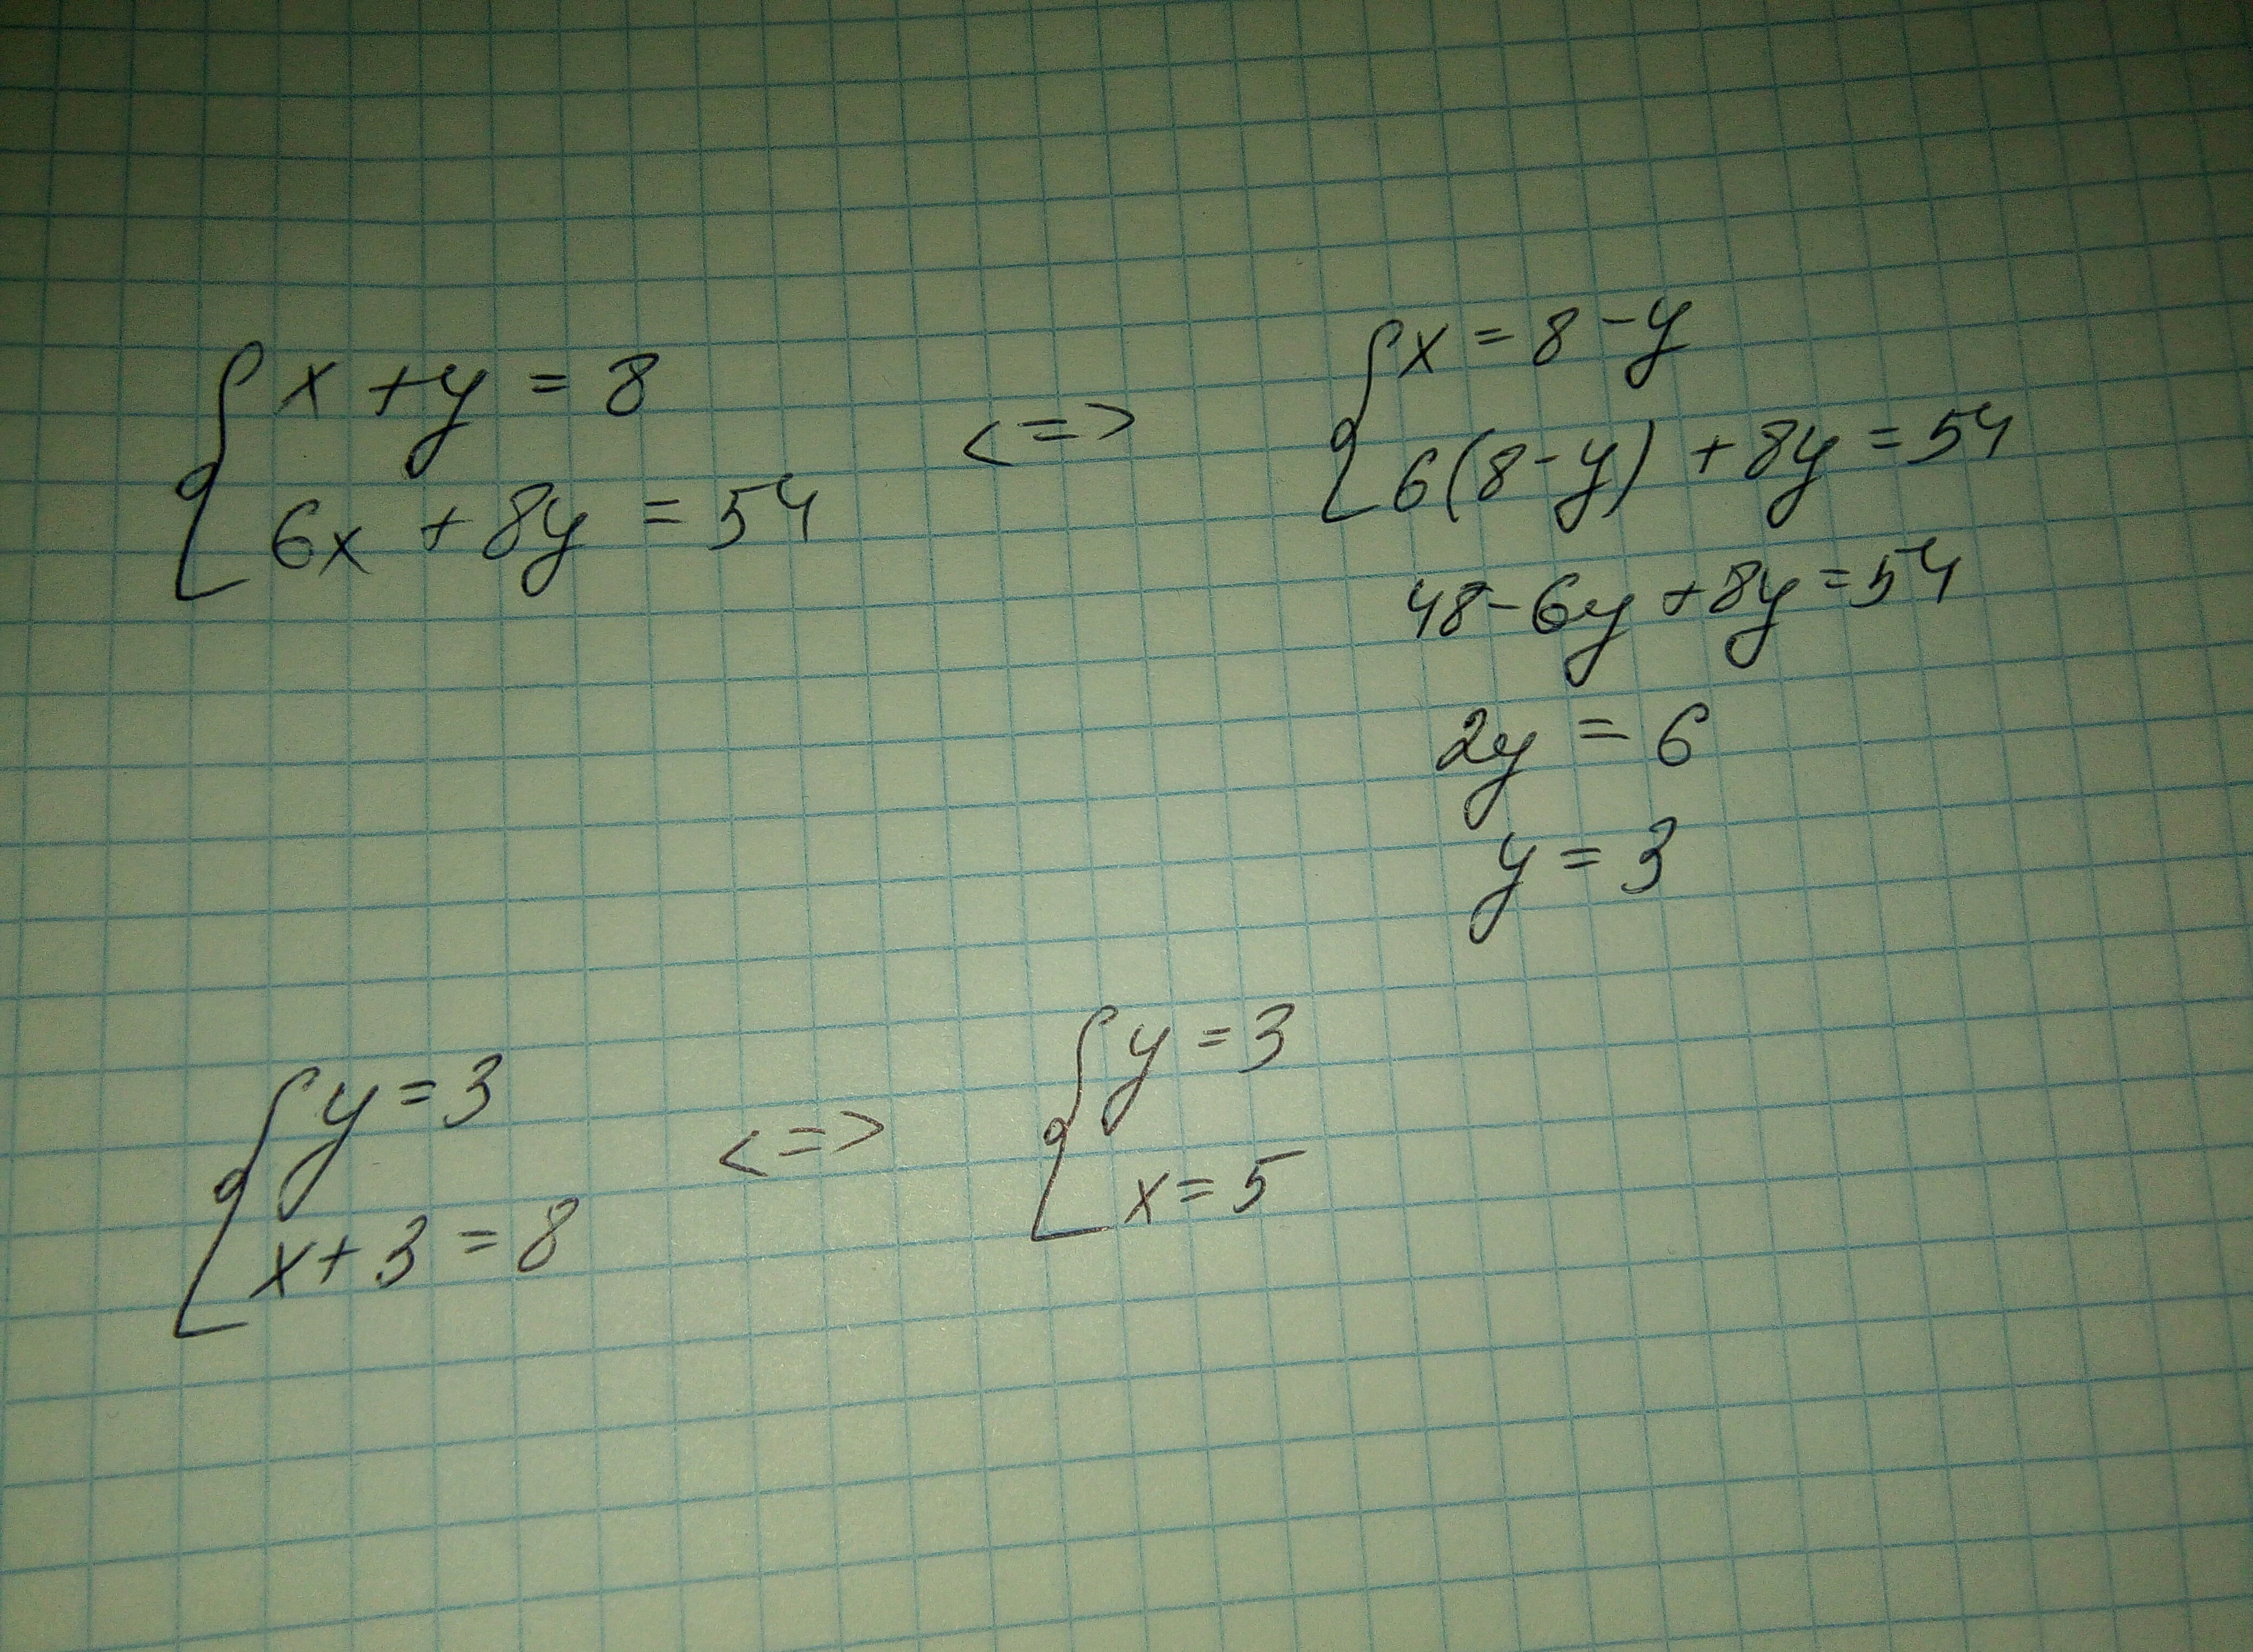 x + y = 8
6x + 8y = 54
<=>
x = 8 - y
6(8 - y) + 8y = 54
48 - 6y + 8y = 54
2y = 6
y = 3
y = 3
x + 3 = 8
<=>
y = 3
x = 5